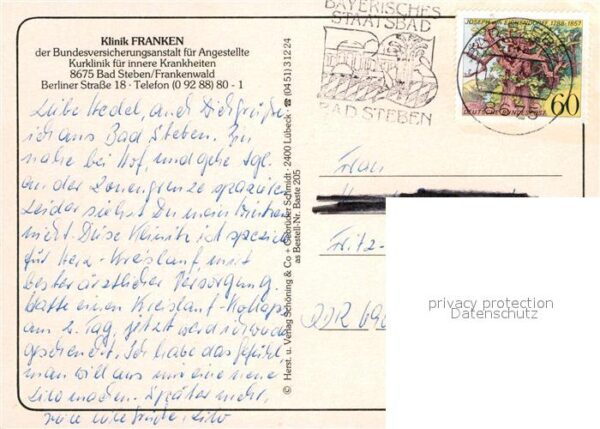 Klinik FRANKEN
der Bundesversicherungsanstalt für Angestellte
Kurklinik für innere Krankheiten
8675 Bad Steben/Frankenwald
Berliner Straße 18 · Telefon (0 92 88) 80 - 1
Liebe Hedel, auch Dich grüße
ich aus Bad Steben. Bin
nahe bei Hof, und gehe tgl.
an der Zonengrenze spazieren
Leider siehst Du mein
nicht. Diese Klinik ist speziell
für Herz-Kreislauf mit
bester ärztlicher Versorgung.
Hatte einen Kreislauf-Kollaps
am 2. Tag, jetzt werd ich
geschont. Ich habe das Gefühl
man will aus mir eine neue
Lilo machen. Später mehr,
viele liebe Grüße, Lilo
© Herst. u. Verlag Schöning & Co + Gebrüder Schmidt · 2400 Lübeck · ☎ (04 51) 3 12 24
as Bestell-Nr. Baste 205
BAYERISCHES
STAATSBAD
BAD STEBEN
JOSEPH VON EICHENDORFF 1788-1857
60
DEUTSCHE BUNDESPOST
Frau
Fritz-
DDR 690
privacy protection
Datenschutz